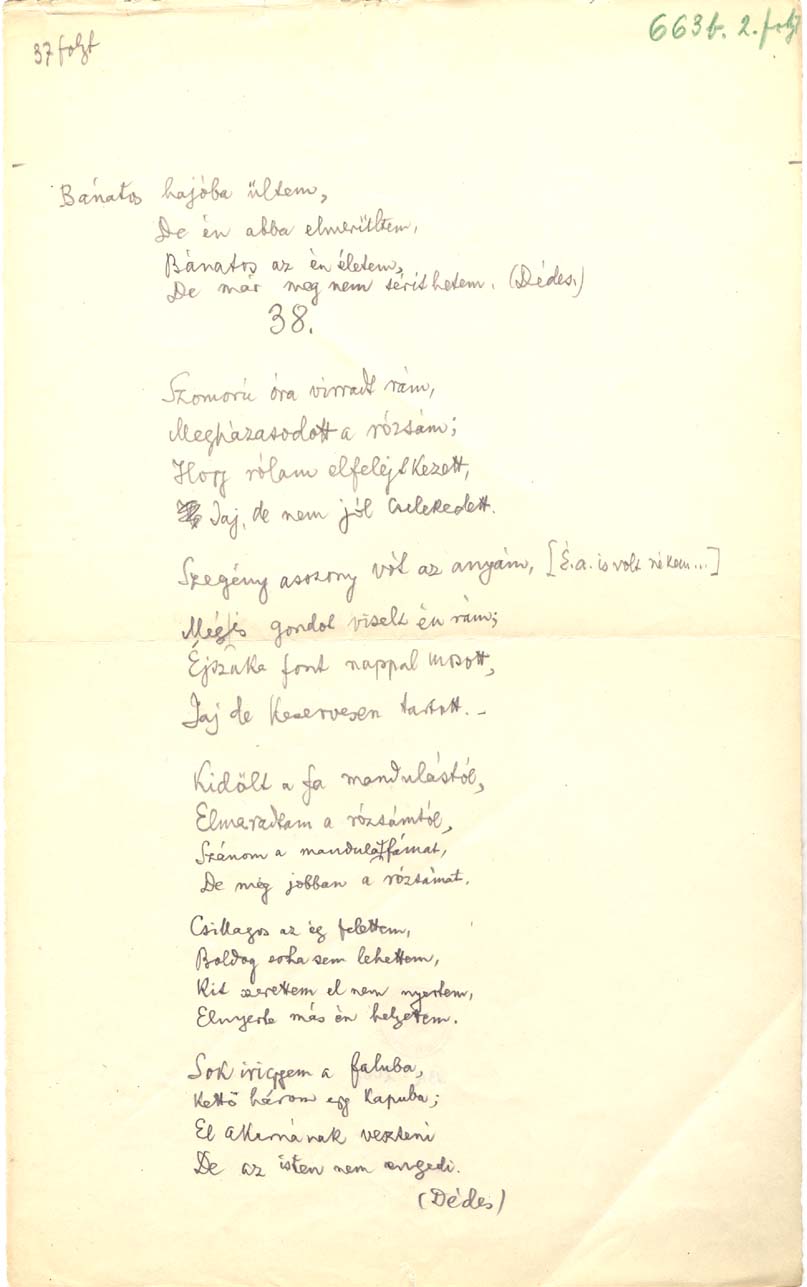 37 folyt
663b. 2. folyt
Bánatos hajóba ültem,
De én abba elmerültem,
Bánatos az én életem,
De már meg nem téríthetem. (Dédes.)
38.
Szomorú óra virradt rám,
Megházasodott a rózsám;
Hogy rólam elfelejtkezett,
Jaj, de nem jól cselekedett.
Szegény asszony vót az anyám, [É.a. is volt nékem...]
Mégis gondot viselt én rám;
Éjszaka font nappal mosott,
Jaj de keservesen tartott. –
Kidőlt a fa mandulástól,
Elmaradtam a rózsámtól,
Szánom a mandulafámat,
De még jobban a rózsámat.
Csillagos az ég felettem,
Boldog soha sem lehettem,
Kit szerettem el nem nyertem,
Elnyerte más én helyettem.
Sok irigyem a faluba,
Kettő három egy kapuba;
El akarnának veszteni
De az isten nem engedi.
(Dédes)